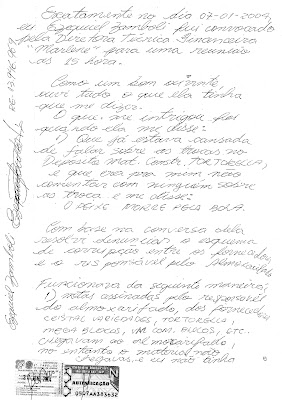 Exatamente no dia 07-01-2009,
eu Ezequiel Zomboli fui convocado
pela Diretora Técnica Financeira
"Marlene" para uma reunião
as 15 hora.
Como um bom ouvinte,
ouvi tudo o que ela tinha
que me dizer.
O que me intrigou foi
quando ela me disse:
Que já estava cansada
de falar sobre as trocas no
Deposito Mat. Constr. TORTORELLA,
e que era pra mim não
comentar com ninguém sobre
as troca e me disse:
O PEIXE MORRE PELA BOCA.
Com base na conversa dela
resolvi denunciar o esquema
de corrupção entre os fornecedores
e o responsável pelo Almoxarifado
Funcionava da seguinte maneira:
notas assinadas pelo responsável
do almoxarifado, dos fornecedores
TORTORELLA,
BLOCOS, COM. BLOCOS, ETC.
chegavam ao almoxarifado,
no entanto o material não
chegava, e eu não tinha
Ezequiel Zomboli
AUTENTICAÇÃO